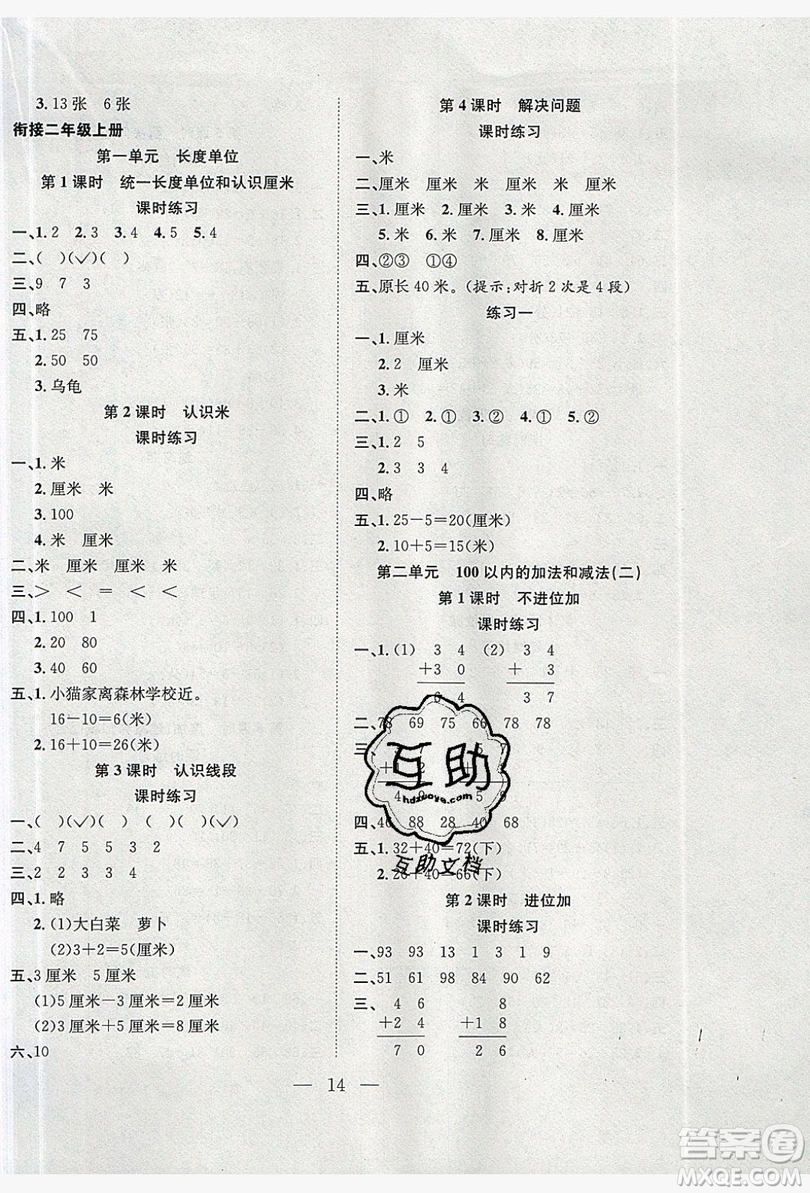 3.13张 6张
衔接二年级上册
第一单元 长度单位
第1课时 统一长度单位和认识厘米
课时练习
一、1.2 2.3 3.4 4.5 5.4
二、( )(✓)( )
三、9 7 3
四、略
五、1.25 75
2.50 50
3.乌龟
第2课时 认识米
课时练习
一、1.米
2.厘米 米
3.100
4.米 厘米
二、米 厘米 厘米 米
三、> < = < <
四、1.100 1
2.20 80
3.40 60
五、1.小猫家离森林学校近。
16-10=6(米)
2.16+10=26(米)
第3课时 认识线段
课时练习
一、( )(✓) ( ) ( )(✓)
二、4 7 5 5 3 2
三、1 2 2 3 4
四、1.略
2.(1)大白菜 萝卜
(2)3+2=5(厘米)
五、3厘米 5厘米
(1)5厘米-3厘米=2厘米
(2)3厘米+5厘米=8厘米
六、10
第4课时 解决问题
课时练习
一、米
二、米 厘米 厘米 厘米 米
三、1.厘米 2.厘米 3.厘米 4.厘米
5.米 6.厘米 7.厘米 8.厘米
四、②③ ①④
五、原长40米。(提示:对折2次是4段)
练习一
一、1.厘米
2.2 厘米
3.米
二、1.① 2.① 3.② 4.① 5.②
三、1.2 5
2.3 3 4
四、略
五、1.25-5=20(厘米)
2.10+5=15(米)
第二单元 100以内的加法和减法(二)
第1课时 不进位加
课时练习
一、1.(1) 3 4 (2) 3 4
+3 0 + 3
6 4 3 7
二、78 69 75 66 78 78
三、
+2
4 9 5 9
四、40 88 28 40 68
五、1.32+40=72(下)
2.26+40=66(下)
第2课时 进位加
课时练习
一、93 93 13 1 3 1 9
二、51 61 98 84 90 62
三、 4 6 8
+2 4 +1 8
7 0 2 6
互助
hdzuoye.com
互助文档
14
答案圈
MXQE.COM